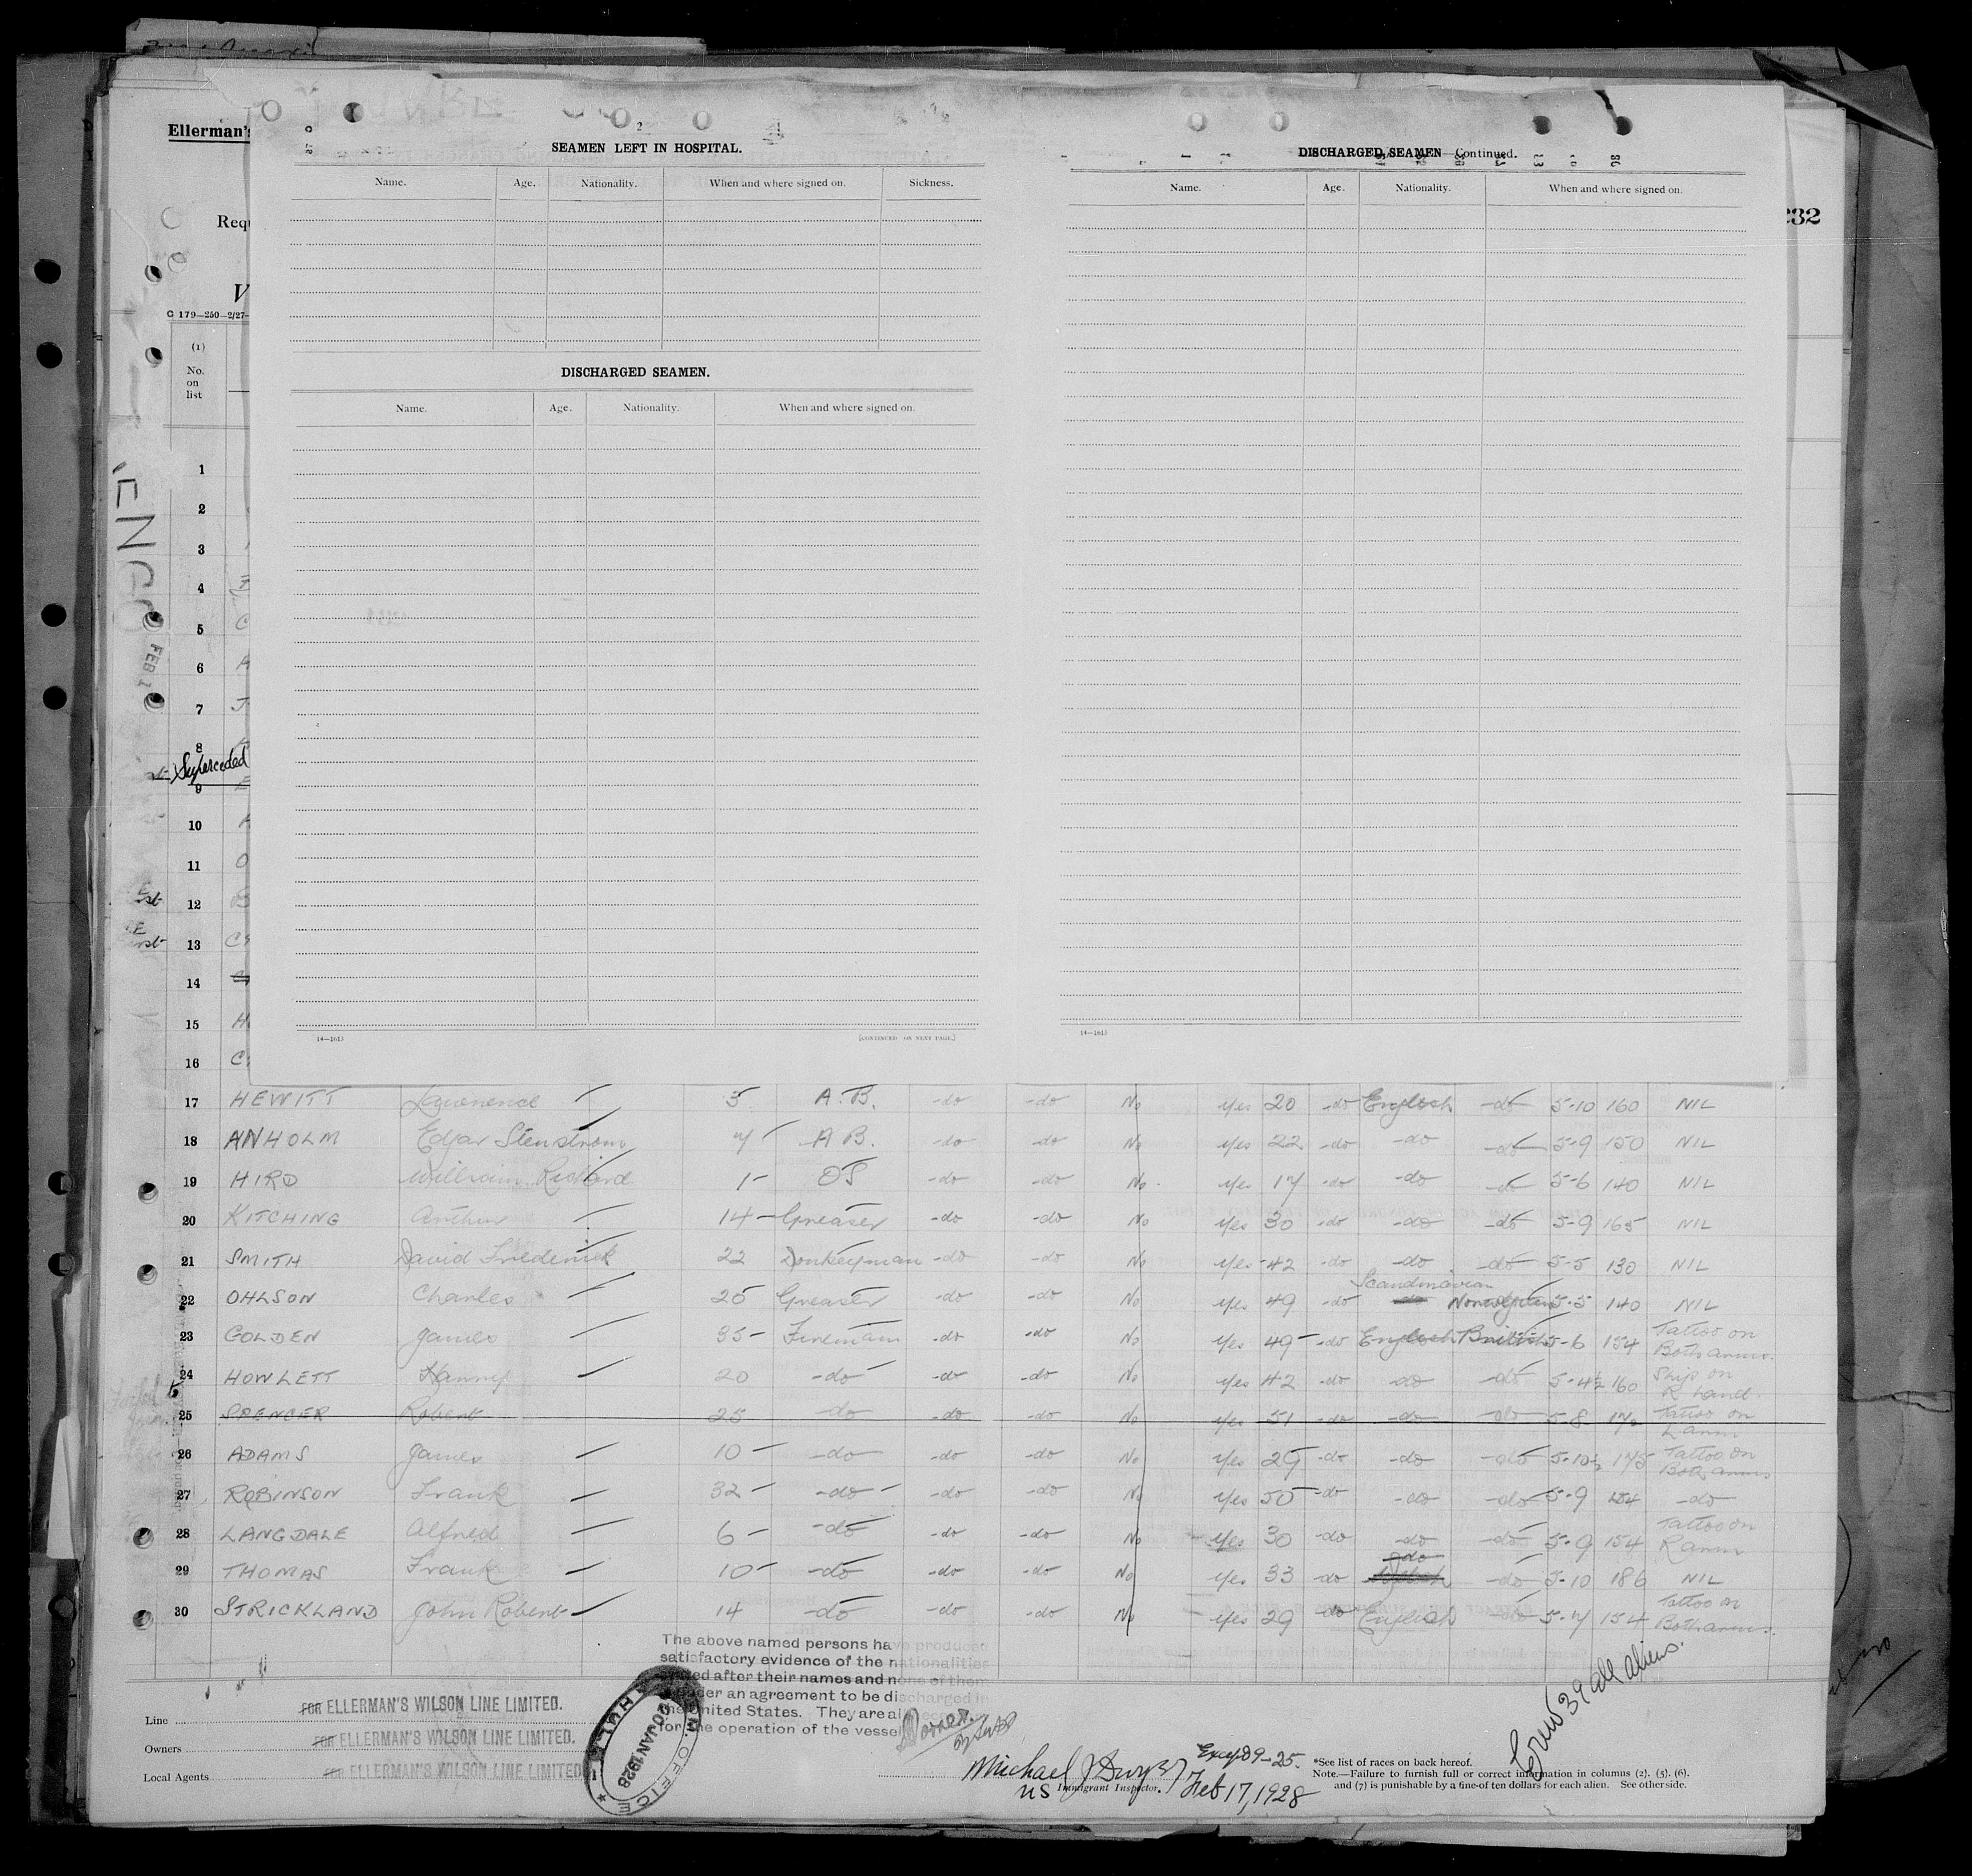 Ellerman's
Requ
V
C 179—250—2/27—
232
(1)
No.
on
list
2
SEAMEN LEFT IN HOSPITAL.
Name. Age. Nationality. When and where signed on. Sickness.
DISCHARGED SEAMEN.
Name. Age. Nationality. When and where signed on.
14—1613 [CONTINUED ON NEXT PAGE.]
DISCHARGED SEAMEN—Continued.
Name. Age. Nationality. When and where signed on.
14—1613
FEB 1
1
2
3
4
5
6
7
8
Superceded
9
10
11
12
13
14
15
16
17 HEWITT Lawrence 5 A.B. -do -do No yes 20 -do English -do 5-10 160 NIL
18 ANHOLM Edgar Stenstrom 7 A B. -do -do No yes 22 -do -do -do 5-9 150 NIL
19 HIRD William Richard 1- OS -do -do No yes 17 -do -do -do 5-6 140 NIL
20 KITCHING Arthur 14 Greaser -do -do No yes 30 -do -do -do 5-9 165 NIL
21 SMITH David Frederick 22 Donkeyman -do -do No yes 42 -do -do -do 5-5 130 NIL
22 OHLSON Charles 25 Greaser -do -do No yes 49 -do Scandinavian Norwegian 5-5 140 NIL
23 GOLDEN James 35- Fireman -do -do No yes 49 -do English British 5-6 154 Tattoo on Both arms.
24 HOWLETT Harry 20 -do -do -do No yes 42 -do -do -do 5-4½ 160 Ship on R hand.
25 SPENCER Robert 25 -do -do -do No yes 51 -do -do -do 5-8 170 Tattoo on L arm
26 ADAMS James 10- -do -do -do No yes 29 -do -do -do 5-10½ 175 Tattoo on Both arms
27 ROBINSON Frank 32- -do -do -do No yes 50 -do -do -do 5-9 154 -do
28 LANGDALE Alfred 6- -do -do -do No yes 30 -do -do -do 5-9 154 Tattoo on R arm
29 THOMAS Frank 10- -do -do -do No yes 33 -do -do -do 5-10 186 NIL
30 STRICKLAND John Robert 14 -do -do -do No yes 29 -do English -do 5-7 154 Tattoo on Both arms.
The above named persons have produced
satisfactory evidence of the nationalities
stated after their names and none of them
under an agreement to be discharged in
the United States. They are all
for the operation of the vessel
Line FOR ELLERMAN'S WILSON LINE LIMITED.
Owners FOR ELLERMAN'S WILSON LINE LIMITED.
Local Agents FOR ELLERMAN'S WILSON LINE LIMITED
HULL OFFICE
JAN 1928
Crew 39 all aliens.
Except 9-25.
Michael J Dwyer
US Immigrant Inspector. Feb 17, 1928
*See list of races on back hereof.
Note.—Failure to furnish full or correct information in columns (2). (5). (6).
and (7) is punishable by a fine of ten dollars for each alien. See other side.